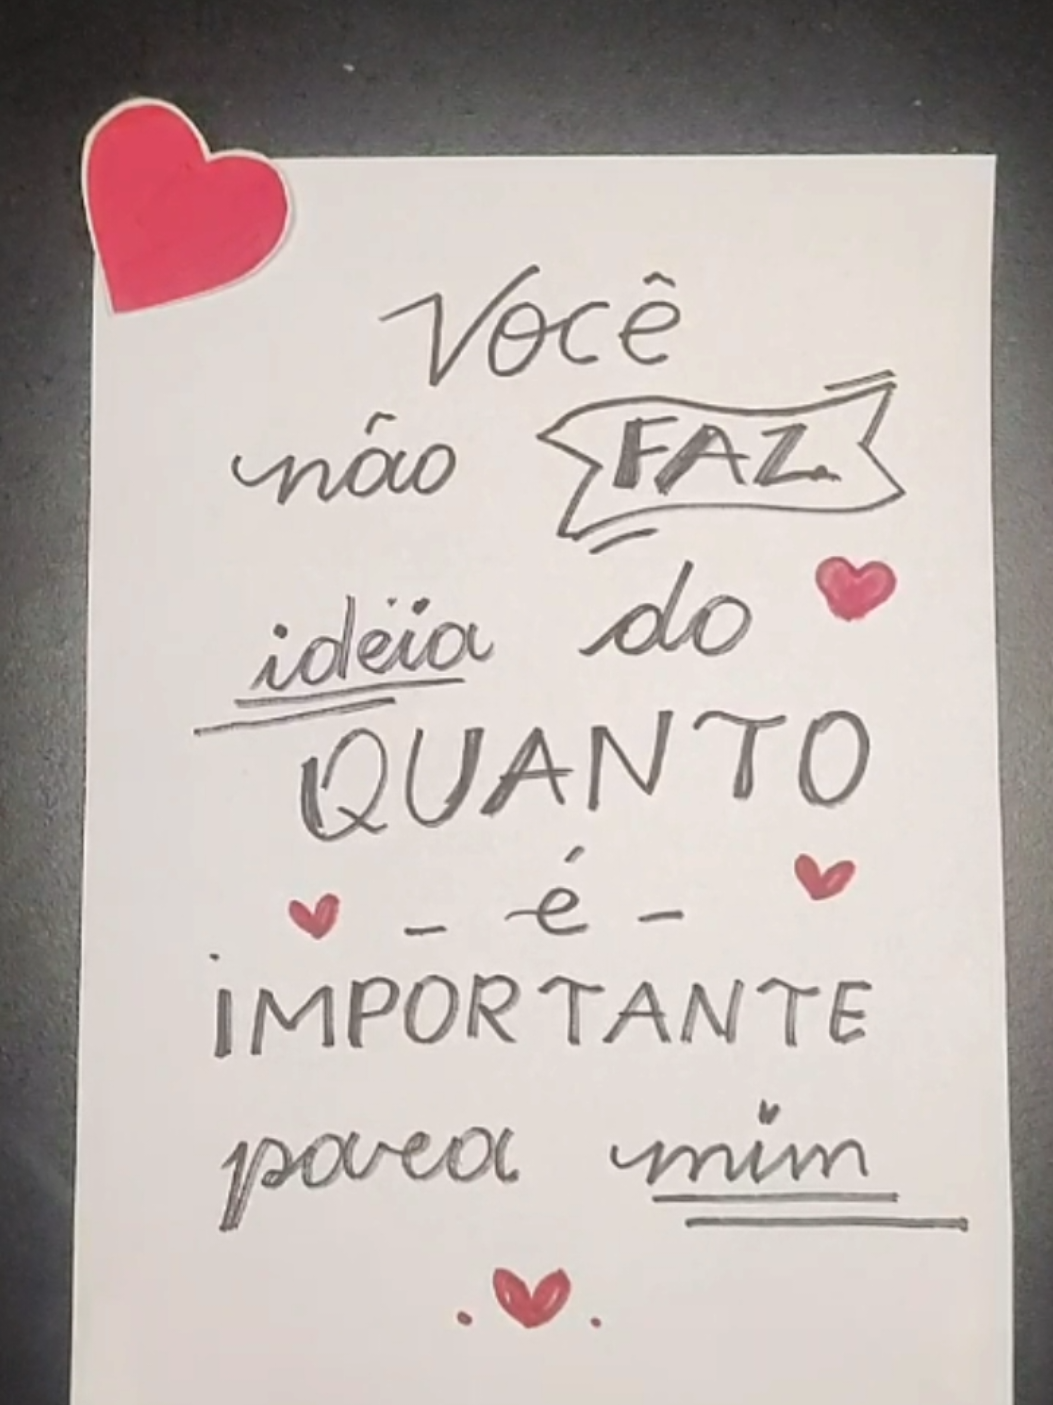 Você
não FAZ
idéia do
QUANTO
- é -
iMPORTANTE
para mim